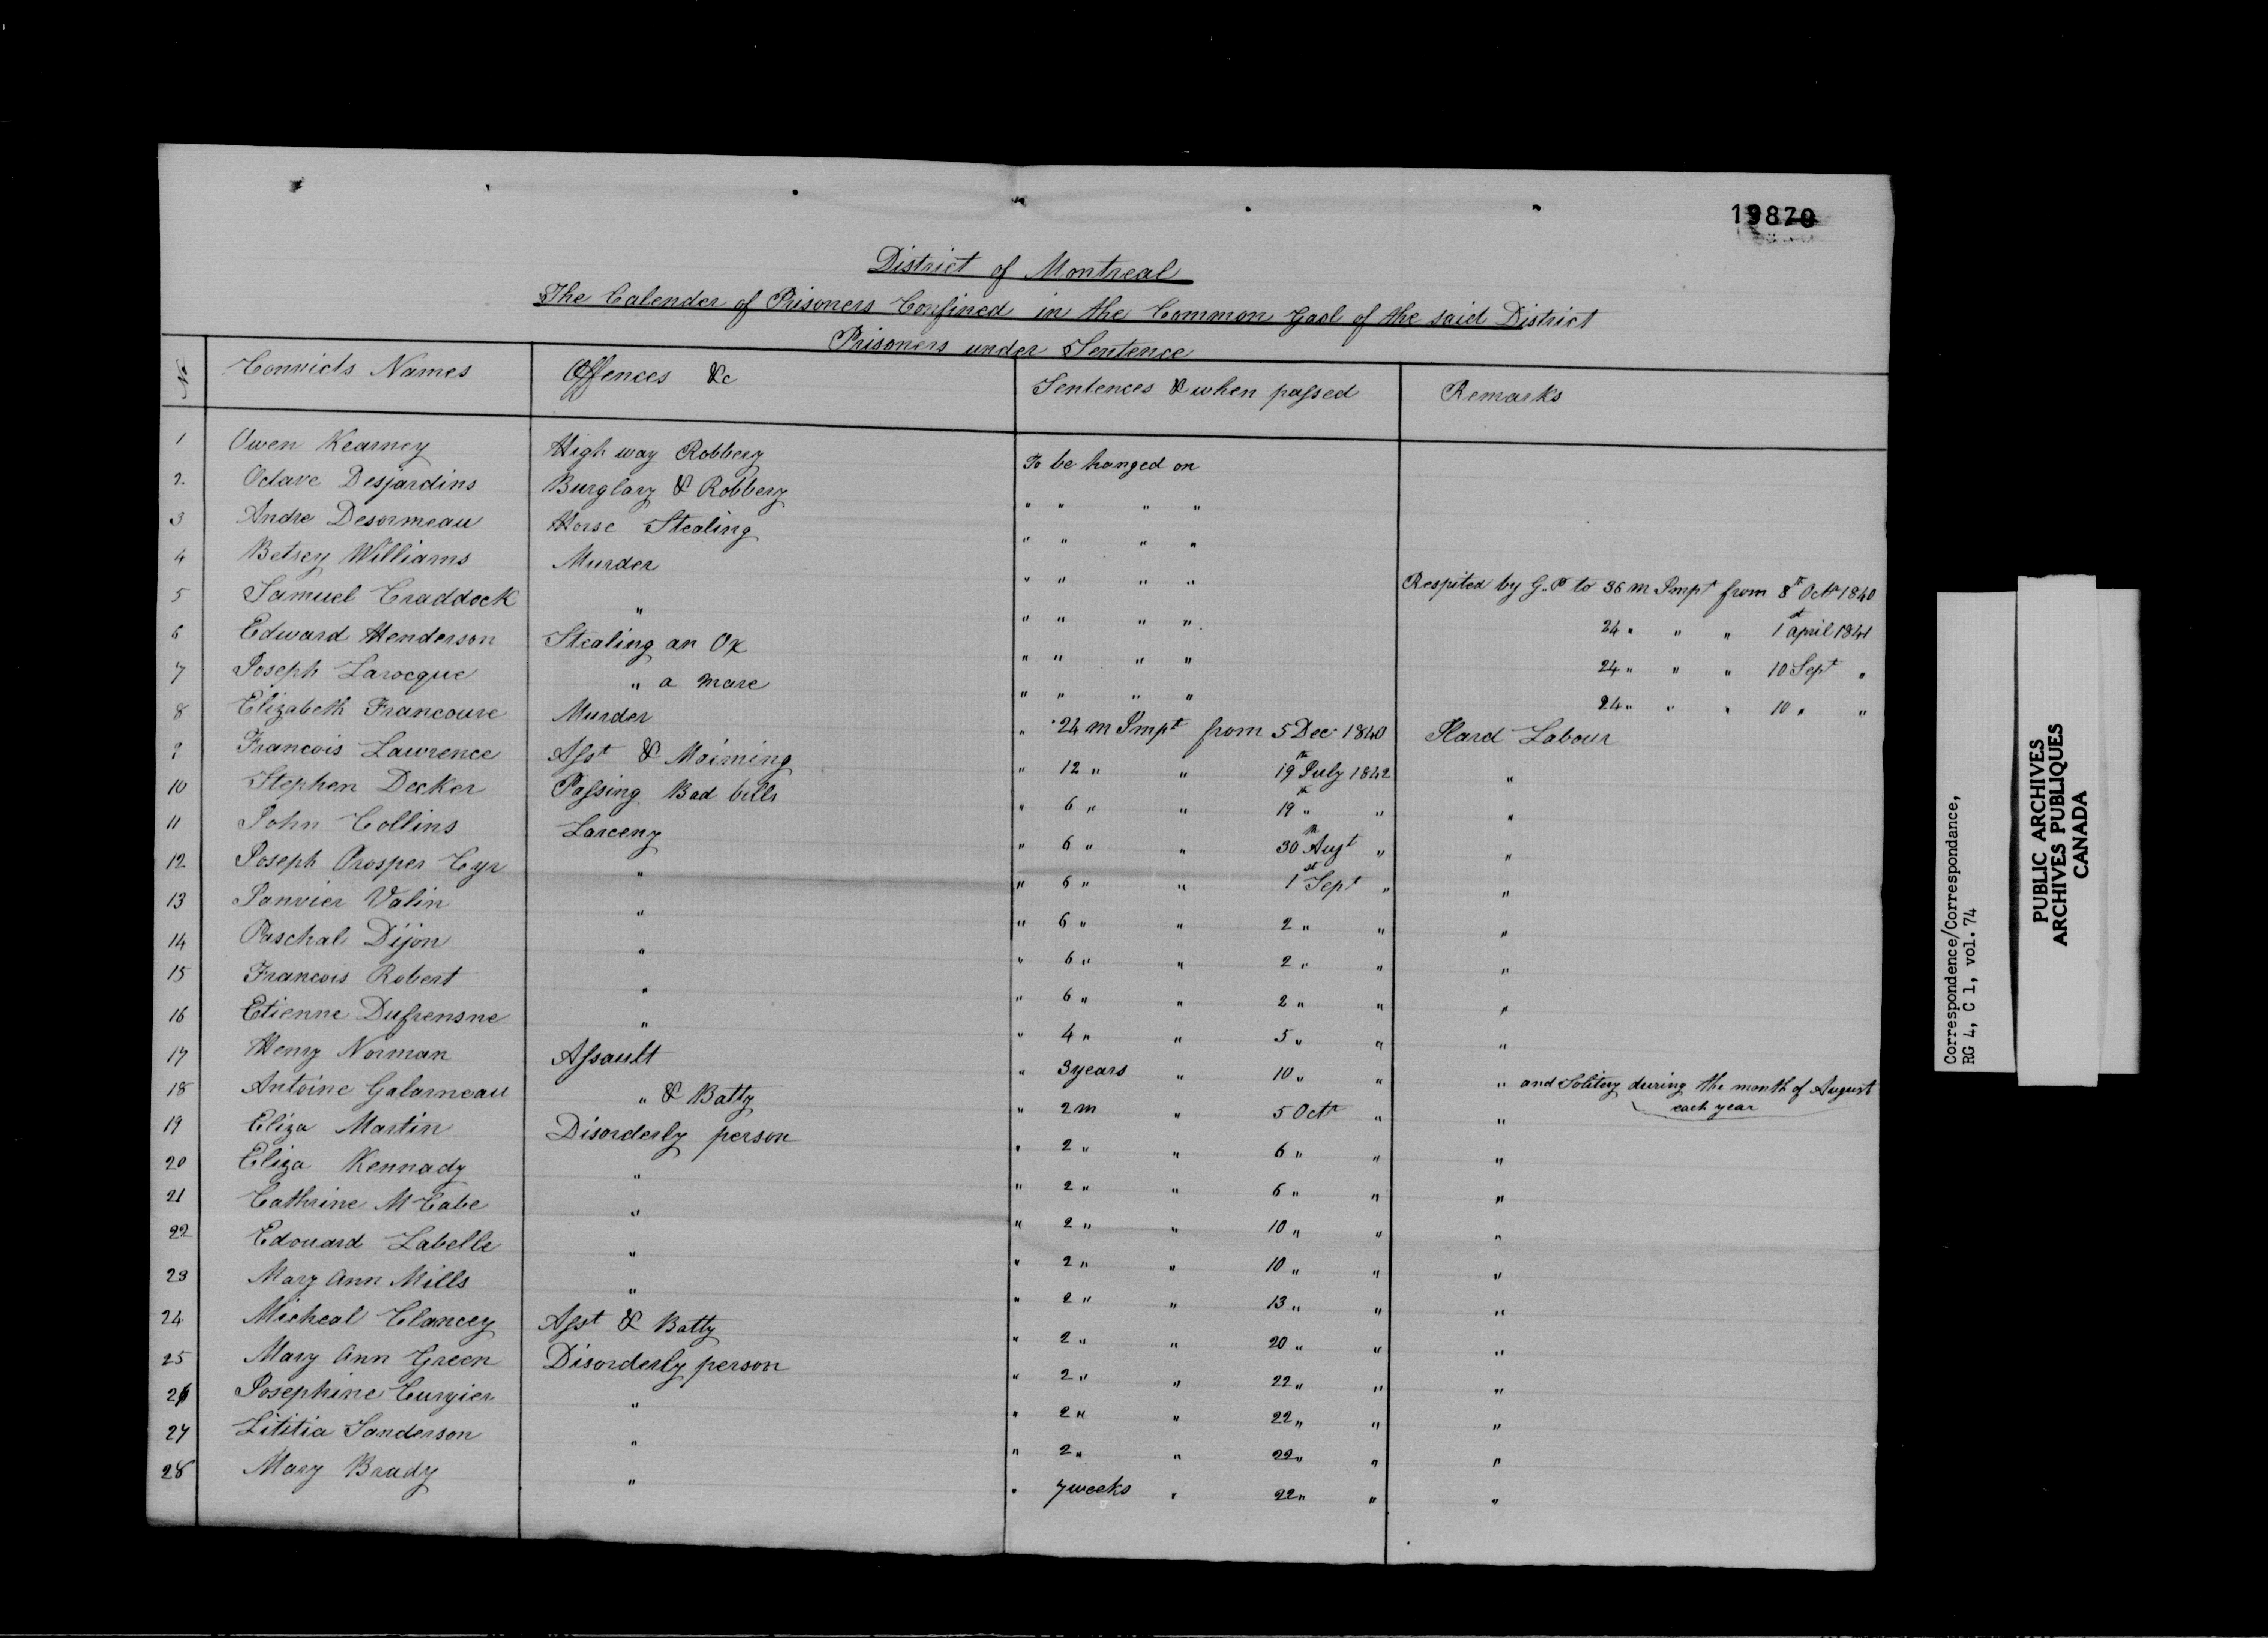 19870
District of Montreal
The Calender of Prisoners Confined in the Common Gaol of the said District
Prisoners under Sentence
No Convicts Names Offences &c Sentences & when passed Remarks
1 Owen Kearney High way Robbery To be hanged on
2 Octave Desjardins Burglary & Robbery " " " "
3 Andre Desormeau Horse Stealing " " " "
4 Betsey Williams Murder " " " " Respited by G.P to 36 m Impt from 8th Octr 1840
5 Samuel Craddock " " " " " 24 " " " 1st April 1841
6 Edward Henderson Stealing an Ox " " " " 24 " " " 10 Sept "
7 Joseph Larocque " a mare " " " " 24 " " " 10 " "
8 Elizabeth Francoure Murder " 24 m Impt from 5 Dec 1840 Hard Labour
9 Francois Lawrence Asst & Maiming " 12 " " 19th July 1842 "
10 Stephen Decker Passing Bad bills " 6 " " 19th " " "
11 John Collins Larceny " 6 " " 30th Augt " "
12 Joseph Prosper Cyr " " 6 " " 1st Sept " "
13 Janvier Valin " " 6 " " 2 " " "
14 Paschal Dijon " " 6 " " 2 " " "
15 Francois Robert " " 6 " " 2 " " "
16 Etienne Dufrensne " " 4 " " 5 " " "
17 Henry Norman Assault " 3 years " 10 " " " and Solitery during the month of August
each year
18 Antoine Galarneau " & Batty " 2 m " 5 Octr " "
19 Eliza Martin Disorderly person " 2 " " 6 " " "
20 Eliza Kennady " " 2 " " 6 " " "
21 Cathrine McCabe " " 2 " " 10 " " "
22 Edouard Labelle " " 2 " " 10 " " "
23 Mary Ann Mills " " 2 " " 13 " " "
24 Micheal Clancey Asst & Batty " 2 " " 20 " " "
25 Mary Ann Green Disorderly person " 2 " " 22 " " "
26 Josephine " " 2 " " 22 " " "
27 Lititia Sanderson " " 2 " " 22 " " "
28 Mary Brady " " 7 weeks " 22 " " "
Correspondence/Correspondance,
RG 4, C 1, vol. 74
PUBLIC ARCHIVES
ARCHIVES PUBLIQUES
CANADA